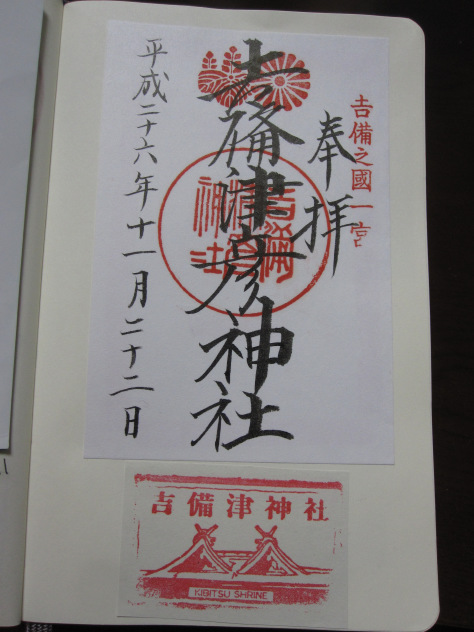 吉備之國一宮
奉拝
吉備津彦神社
平成二十六年十一月二十二日
吉備津神社
KIBITSU SHRINE